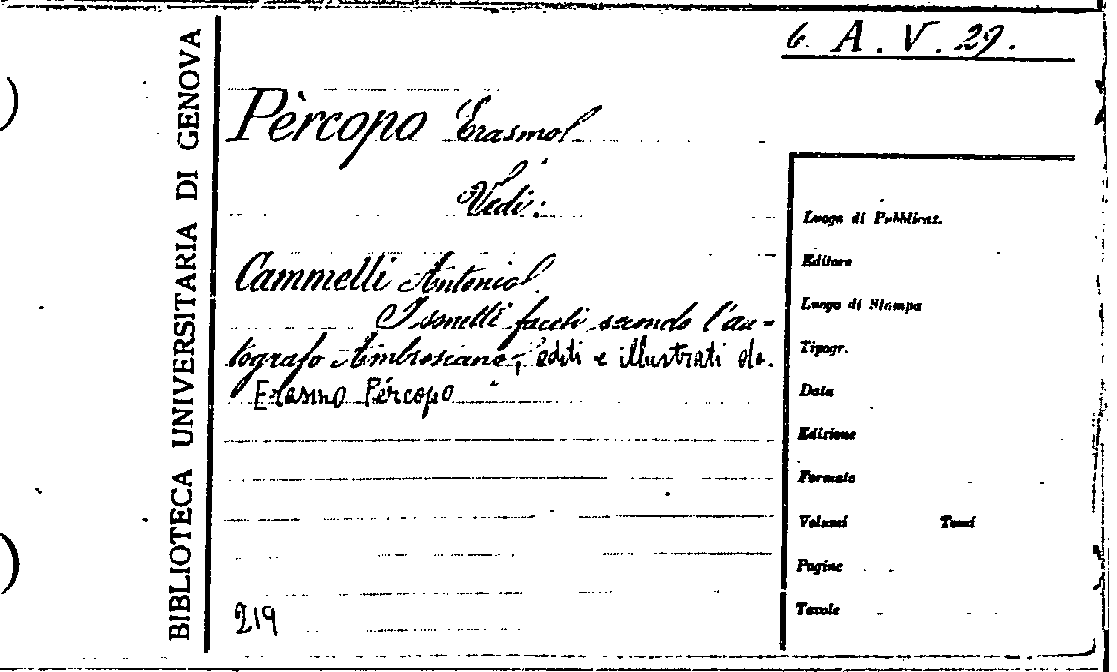 6. A. V. 29.
BIBLIOTECA UNIVERSITARIA DI GENOVA
Pèrcopo Erasmo
Vedi:
Cammelli Antonio
I sonetti faceti secondo l'au-
tografo Ambrosiano, editi e illustrati da
Erasmo Pércopo
219
Luogo di Pubblicaz.
Editore
Luogo di Stampa
Tipogr.
Data
Edizione
Formato
Volumi Tomi
Pagine
Tavole